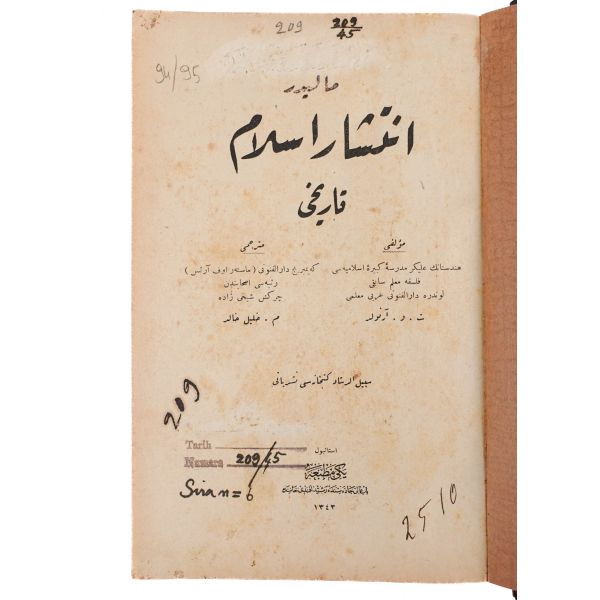 209
209
45
94/95
انتشار اسلام
تاريخى
مؤلفى
هندستانك عليكر مدرسهٔ كبيرهٔ اسلاميه سى
فلسفه معلم سابقى
لوندره دار الفنونى عربى معلمى
ت . و . آرنولد
مترجمى
كه مبريج دار الفنونى ( ماستر اوف آرتس )
رتبه سى اصحابندن
چركس شيخى زاده
م . خليل خالد
سبيل الرشاد كتبخانه سى نشرياتى
209
استانبول
Tarih
يكى مطبعه
Numara 209/45
Sıra n= 6
١٣٤٣
2510